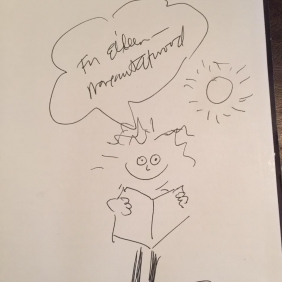 For Eileen —
Margaret Atwood